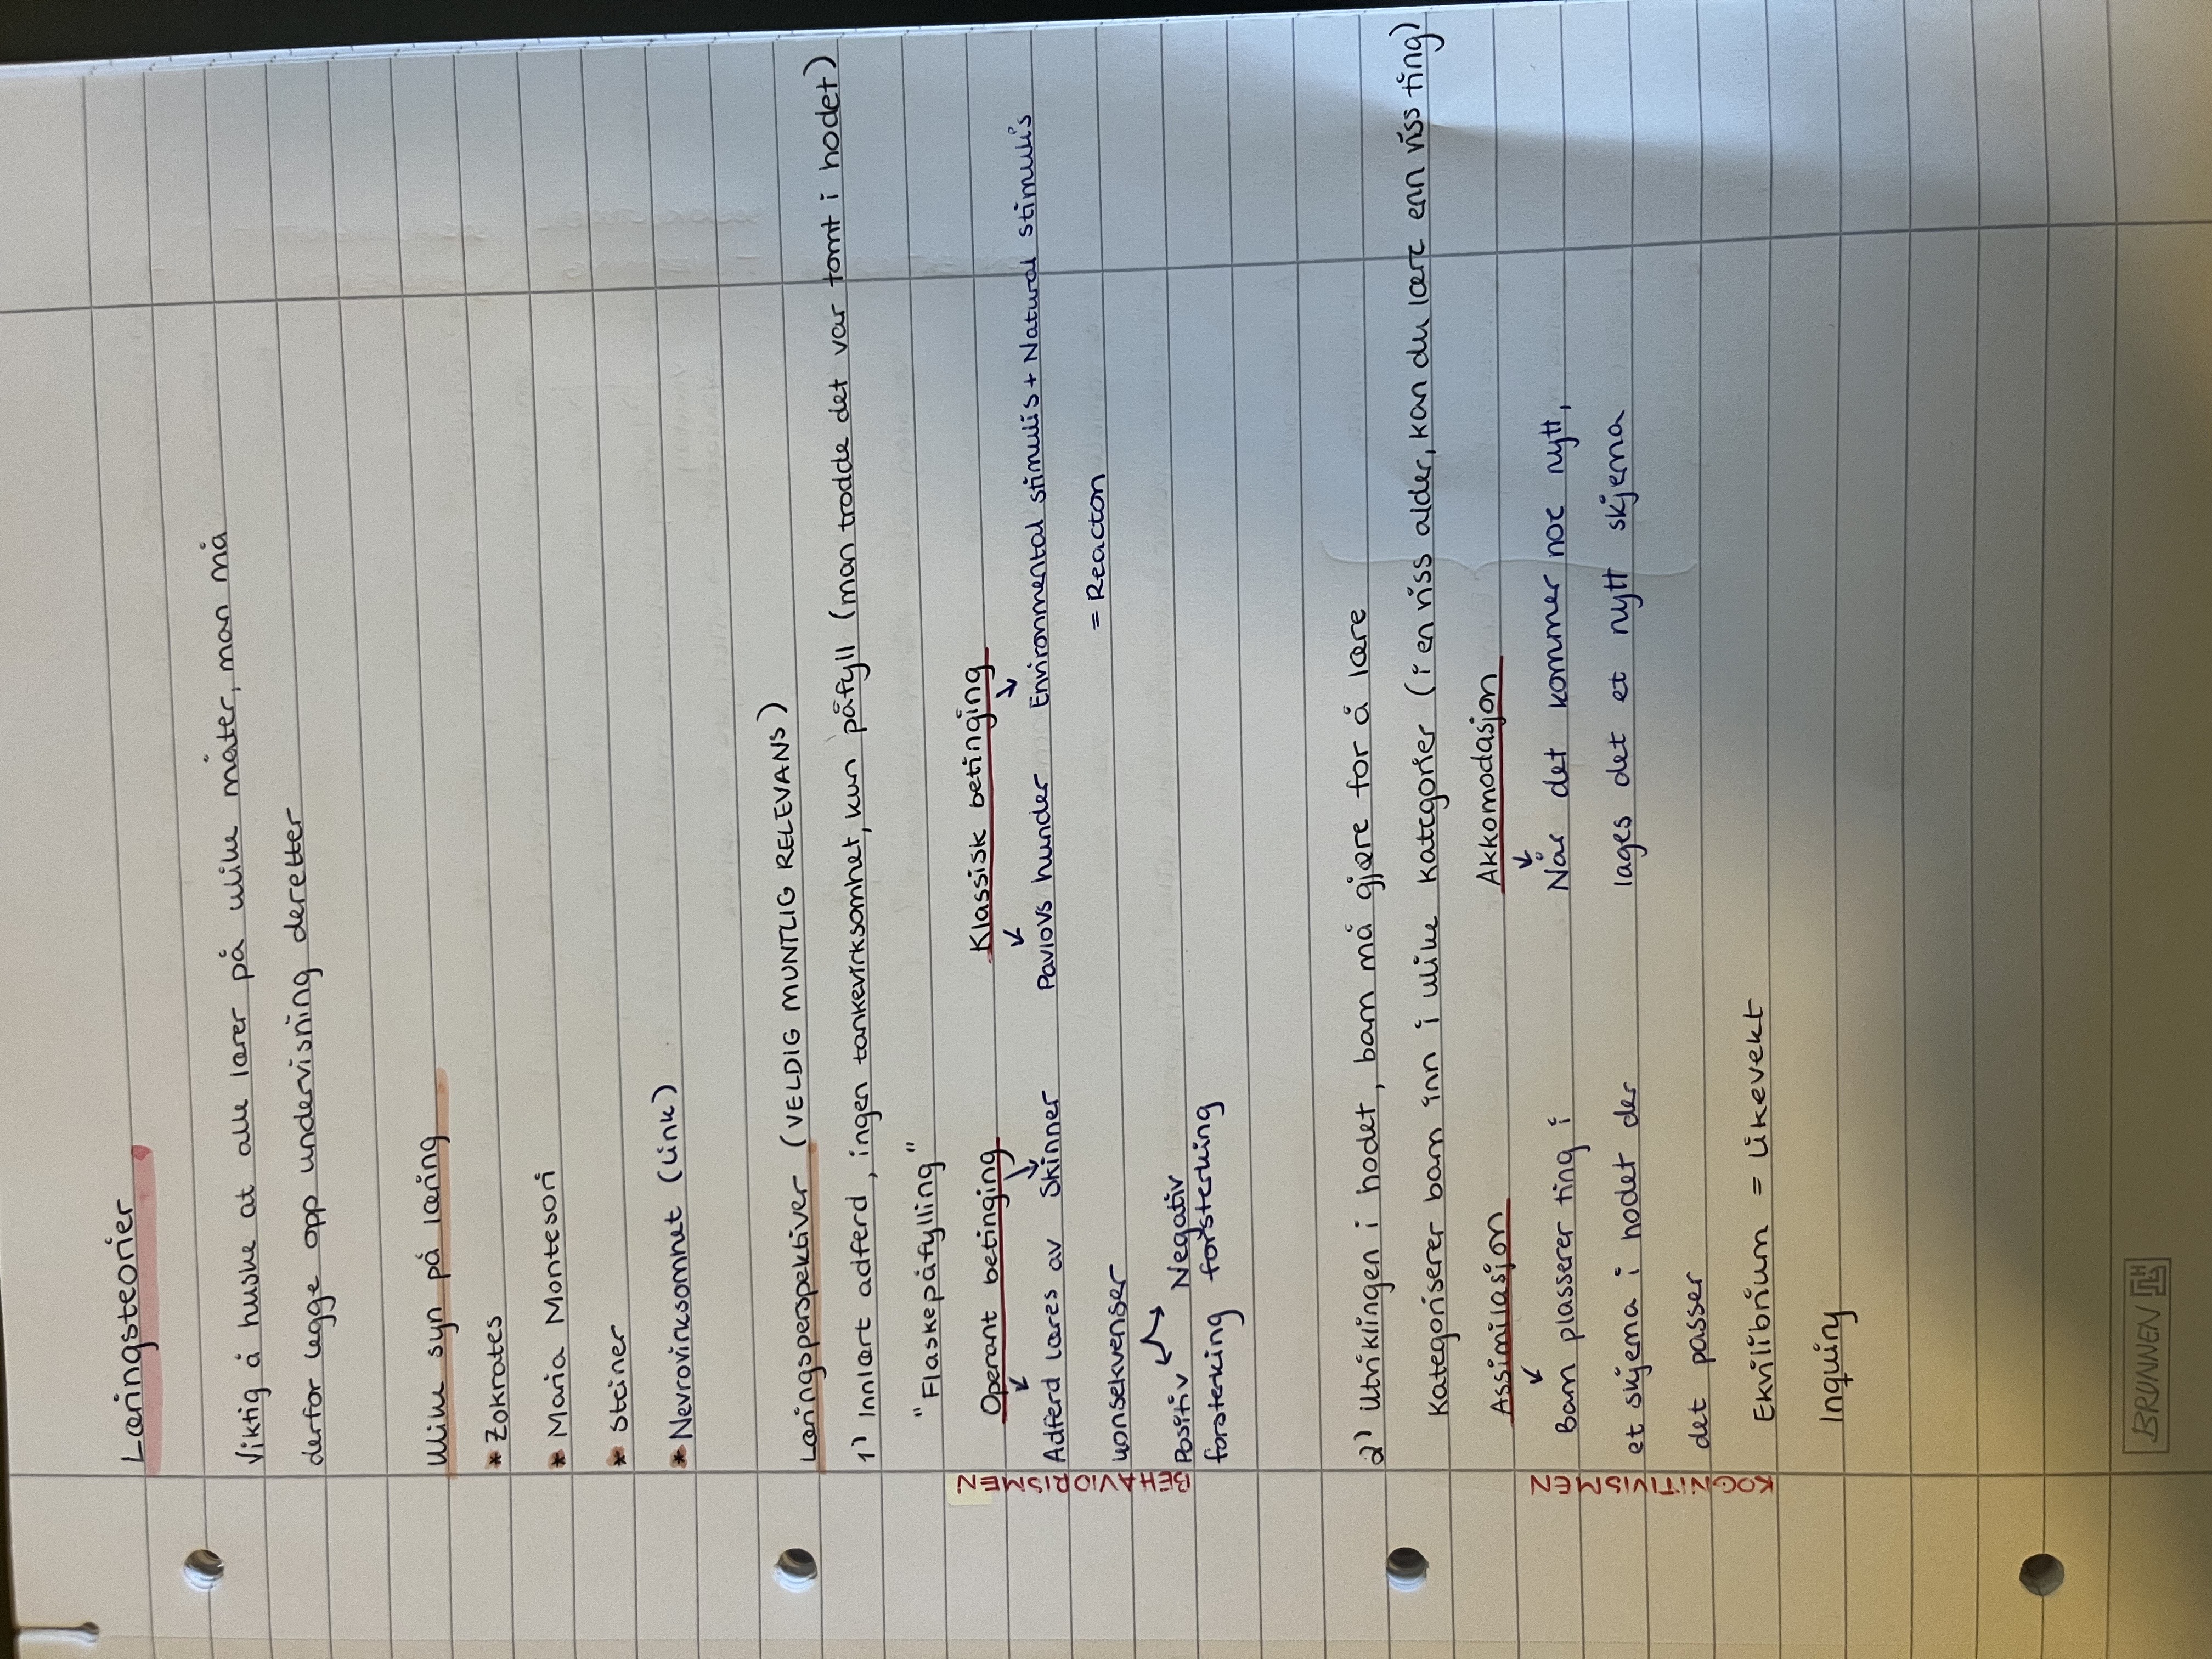 Læringsteorier
Viktig å huske at alle lærer på ulike måter, man må
derfor legge opp undervisning deretter
Ulike syn på læring
* Zokrates
* Maria Montesori
* Steiner
* Nevrovirksomhet (Link)
Læringsperspektiver (VELDIG MUNTLIG RELEVANS)
1) Innlært adferd, ingen tankevirksomhet, kun påfyll (man trodde det var tomt i hodet)
"Flaskepåfylling"
BEHAVIORISMEN
Operant betinging Klassisk betinging
Adferd læres av Skinner Pavlovs hunder Environmental stimulis + Natural stimulis
konsekvenser = Reacton
Positiv Negativ
forsterking forsterking
2) Utviklingen i hodet, barn må gjøre for å lære
Kategoriserer barn inn i ulike kategorier (i en viss alder, kan du lære enn viss ting)
KOGNITIVISMEN
Assimilasjon Akkomodasjon
Barn plasserer ting i Når det kommer noe nytt,
et skjema i hodet der lages det et nytt skjema
det passer
Ekvilibrium = Likevekt
Inquiry
BRUNNEN